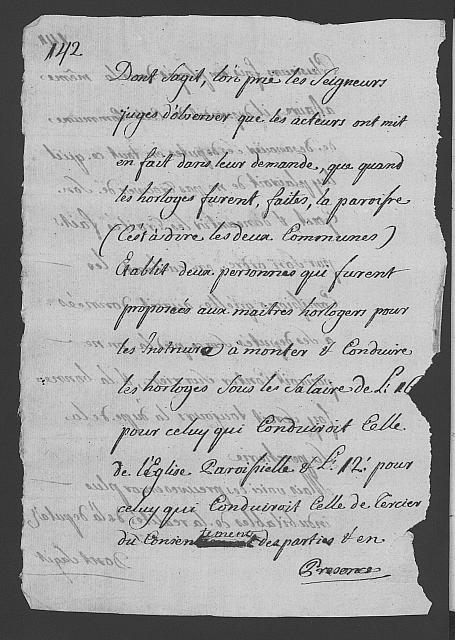 142
Dont sagit, l'on prie les Seigneurs
juges d'observer que les acteurs ont mit
en fait dans leur demande, que quand
les horloges furent, faites, la paroisse
(C'est à dire les deux Communes)
Etablit deux personnes qui furent
proposées aux maitres horlogers pour
les Instruire a monter & Conduire
les horloges sous les Salaire de L. 16
pour celuy qui Conduiroit Celle
de l'Eglise Paroissielle & L. 12. pour
celuy qui Conduiroit Celle de Cercier
du Consentement des parties & en
Presence